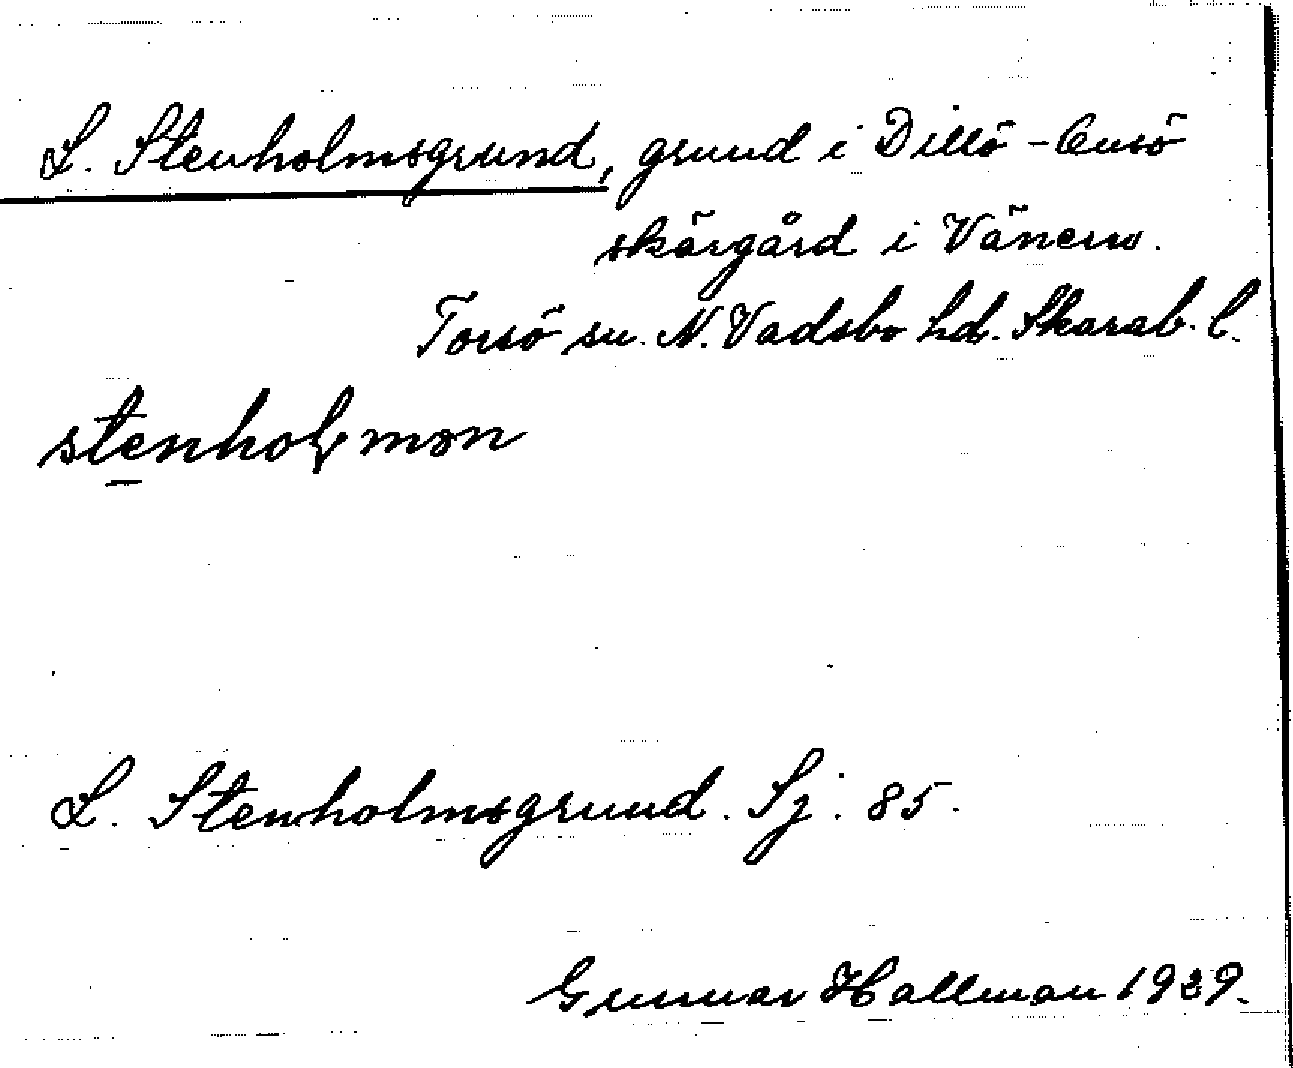 L. Stenholmsgrund, grund i Dillö - Onsö
skärgård i Vänern.
Torsö sn. N. Vadsbo hd. Skarab. l.
stenholmən
L. Stenholmsgrund. Sj. 85.
Gunnar Hallman 1929.